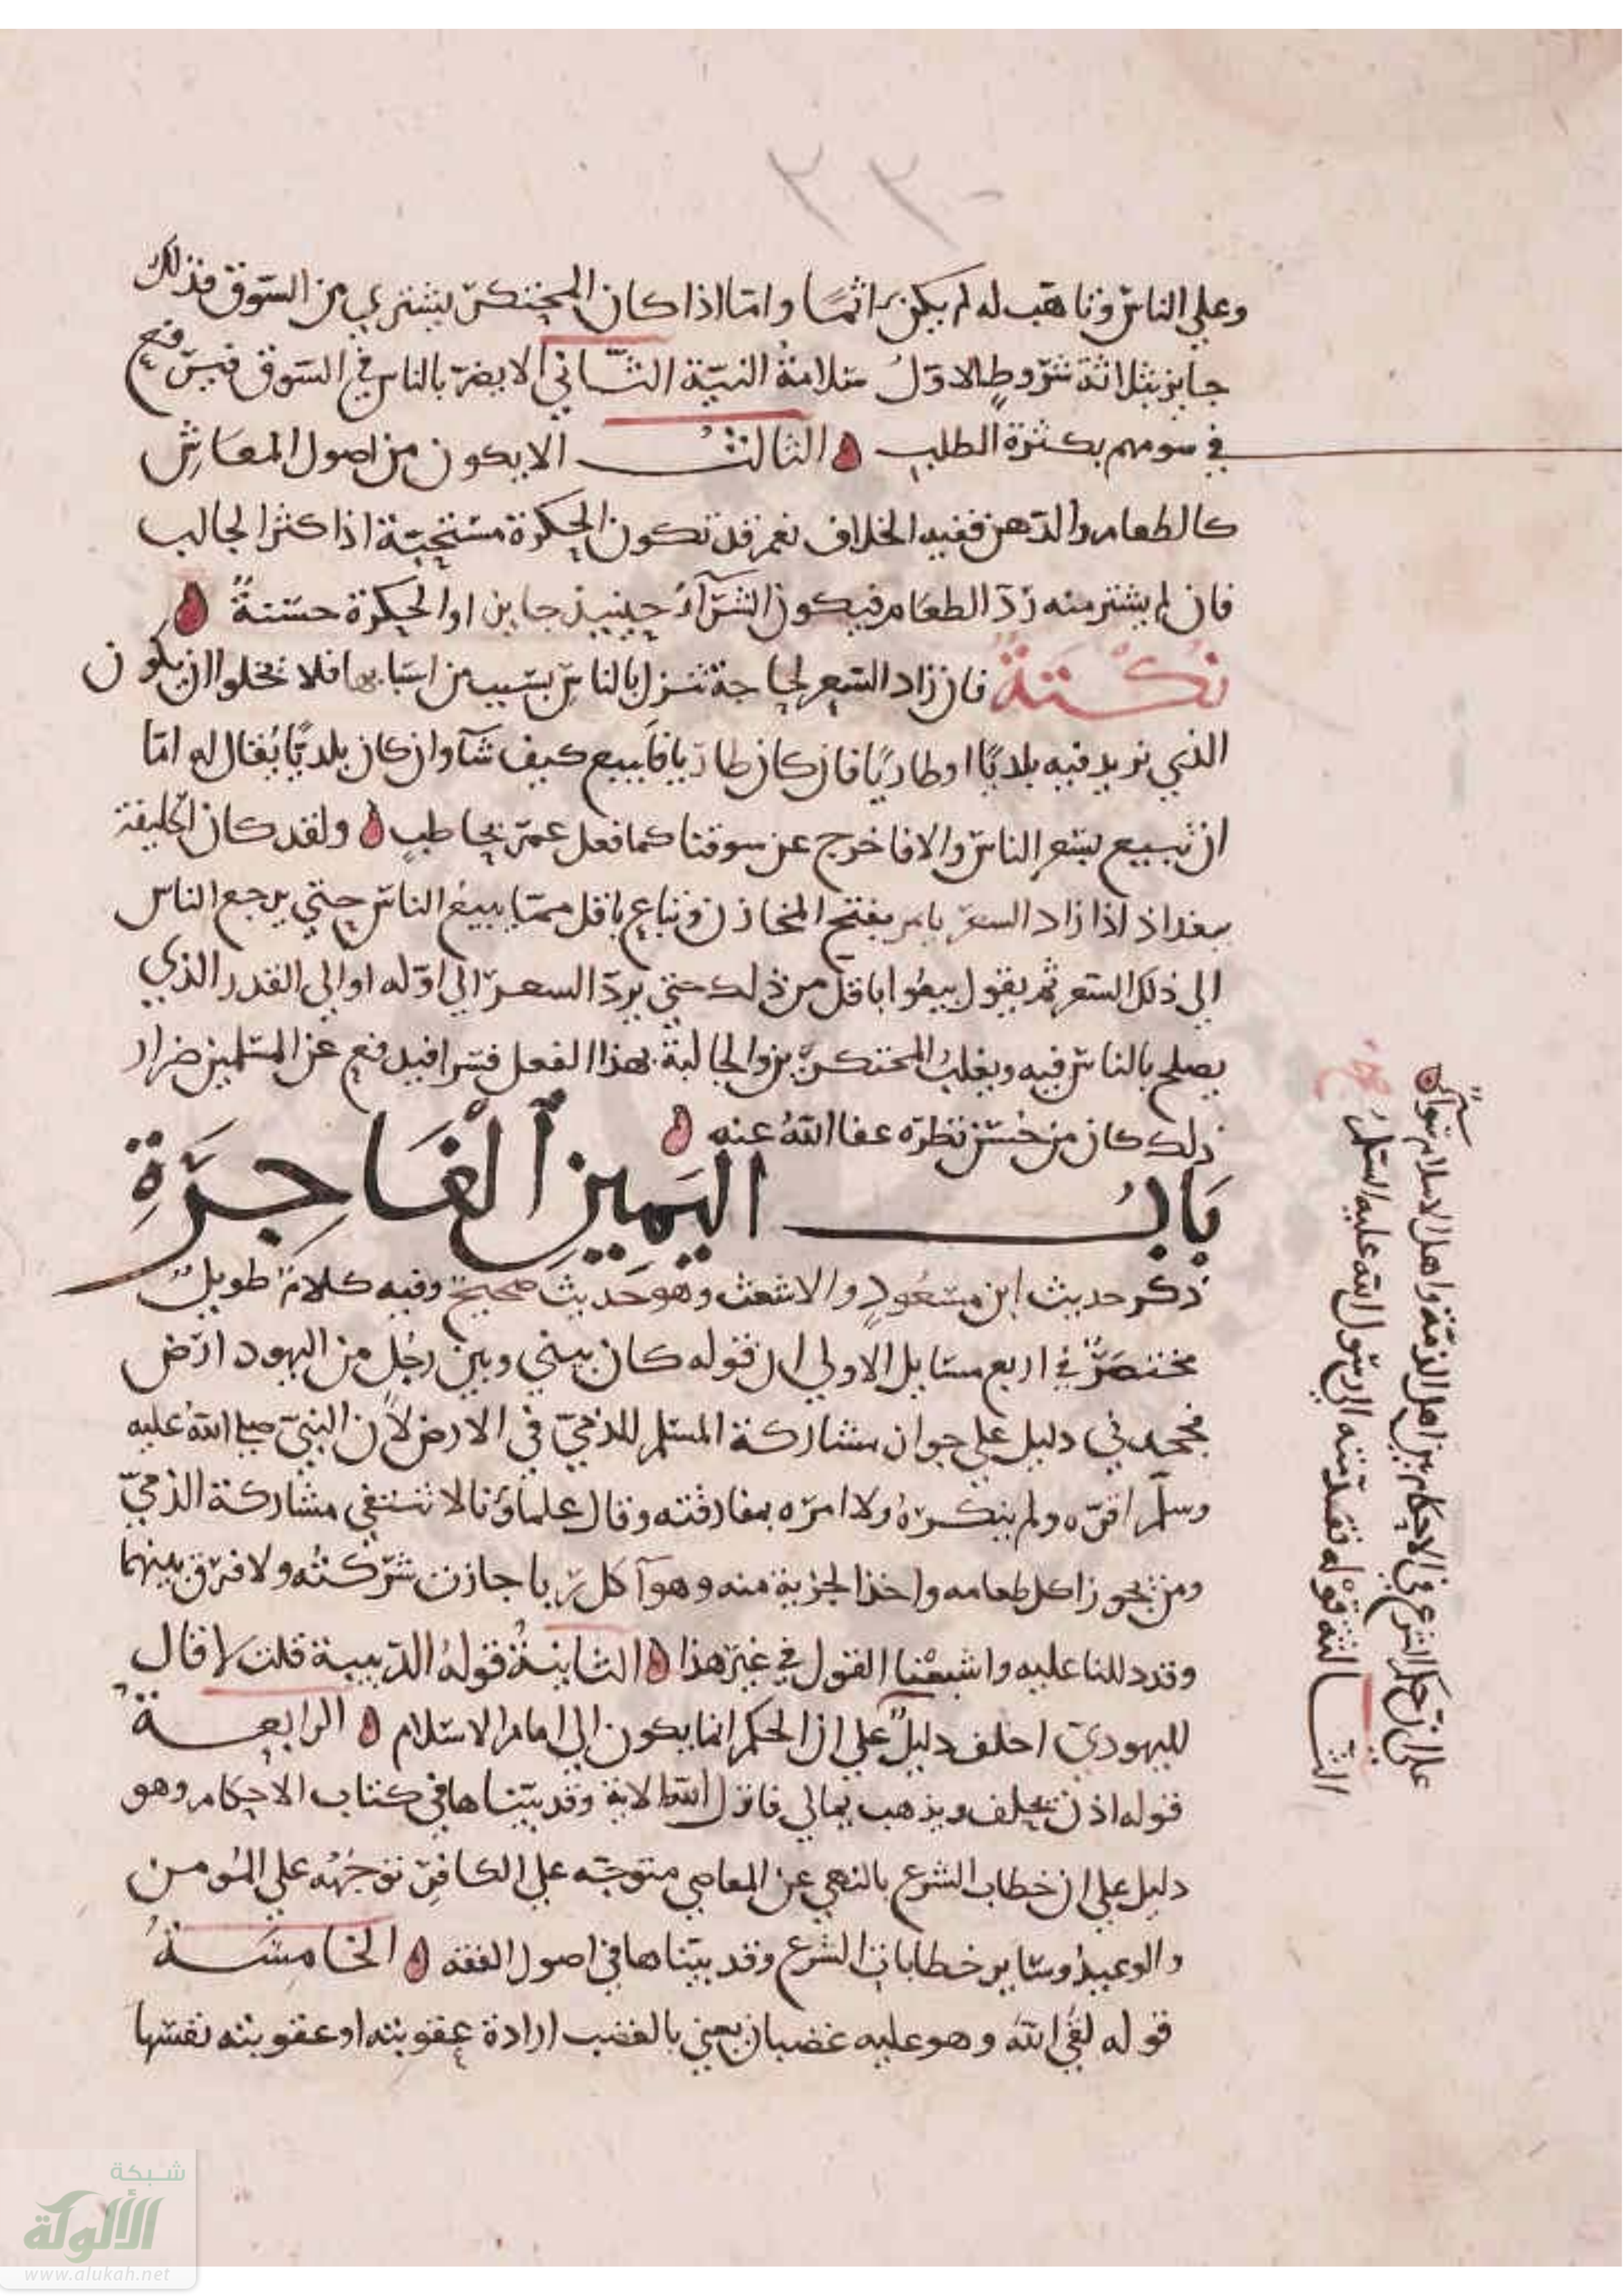 ٢٢
وعلي الناس وتاهب له لم يكن اثمًا واما اذا كان المحتكر يشتري من السوق فذلك
جايز بثلاثة شروط الاول سلامة النية الثاني الا يضر بالناس في السوق فيرفع
في سومهم بكثرة الطلب الثالث الا يكون من اصول المعاش
كالطعام والدهن ففيه الخلاف نعم قد تكون الحكرة مستحبة اذا كثر الجالب
فان لم يشتر منه رد الطعام فيكون الشرآء حينيذ جايزا والحكرة حسنة
نكتة فان زاد السعر لحاجة تنزل بالناس بسبب من اسبابها فلا تخلوا ان يكون
الذي نريد فيه بلديًا او طاريًا فان كان طاريا فايبيع كيف شآ وان كان بلديًّا يُقال له امّا
ان تبيع بسعر الناس والا فاخرج عن سوقنا كما فعل عمر بحاطبٍ ولقد كان الخليفة
ببغداذ اذا زاد السعر يامر بفتح المخازن وتباع باقل مما يبيع الناس حتي يرجع الناس
الي ذلك السعر ثم يقول بيعُوا باقل من ذلك حتي يردّ السعر الي اوّله او الي القدر الذي
يصلح بالناس فيه ويغلبُ المحتكرين والجالبة بهذا الفعل فسرا فيدفع عن المسلمين ضرار
ذلك كان من حُسن نظره عفا اللهُ عنه
بَابُ اليَمِينِ الْفَاجِرَةِ
ذكر حديث ابن مسعُودٍ والاشعث وهو حديث صحيح وفيه كلام طويل
مختصَرُ في اربع مسايل الاولي ان قوله كان بيني وبين رجُل من اليهود ارض
فجحدني دليل علي جواز مشاركة المسلم للذميّ في الارض لأن النبيّ صلي اللهُ عليه
وسلّم اقرّه ولم ينكرهُ ولا امره بمفارقته وقال علماؤنا لا تستغي مشاركة الذميّ
ومن يجوز اكل طعامه واخذ الجزية منه وهو آكل ربا جازت شركته ولا فرق بينهما
وقد دللنا عليه واشبعْنا القول في غير هذا الثانية قولهُ الك بينة قلت لا قال
لليهودي احلف دليلٌ علي ان الحكم انما يكون الي امام الاسلام الرابعةُ
قوله اذن يحلف ويذهب بمالي فانزل الله الاية وقد بيّناها في كتاب الاحكام وهو
دليل علي ان خطاب الشرع بالنهي عن المعاصي متوجّه علي الكافر توجُهُه علي المُومن
والوعيدُ وساير خطابات الشرع وقد بيّناها في اصول الفقه الخامسةُ
قوله لقي اللهَ وهو عليه غضبان يعني بالغضب ارادة عقوبته او عقوبته نفسها
الثالثة قوله تقدمته الرسول الله عليه السلمُ
علي ان حكم الشرع في الاحكام بين اهل الذمة واهل الاسلام سوآءٌ
شبكة
الألوكة
www.alukah.net